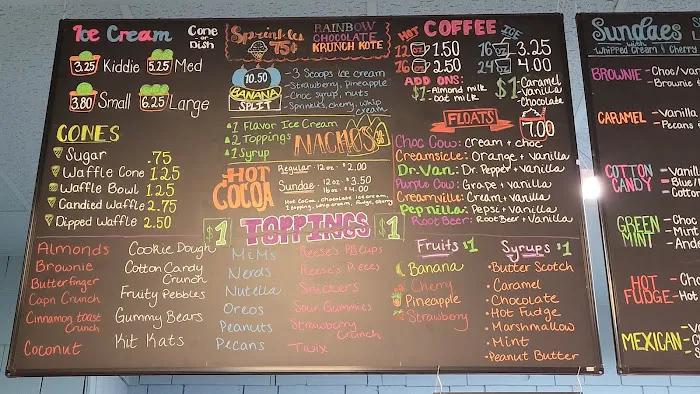 Ice Cream
Cone
or
Dish
3.25 Kiddie 5.25 Med
3.80 Small 6.25 Large
CONES
Sugar .75
Waffle Cone 1.25
Waffle Bowl 1.25
Candied Waffle 2.75
Dipped Waffle 2.50
Sprinkles 75¢
RAINBOW
CHOCOLATE
KRUNCH KOTE
10.50
BANANA
SPLIT
-3 Scoops Ice cream
-Strawberry, Pineapple
-Choc syrup, nuts
-Sprinkles, cherry, whip
cream
1 Flavor Ice Cream
2 Toppings
1 Syrup
NACHOS
HOT
COCOA
Regular 12oz - $2.00
Sundae - 12oz - $3.50
16oz - $4.00
Hot Cocoa, chocolate ice cream,
1 topping, whip cream, fudge, cherry
HOT COFFEE ICE
12 1.50 16 3.25
16 2.50 24 4.00
ADD ONS:
$1 -Almond milk
-Oat milk
$1 -Caramel
-Vanilla
-Chocolate
FLOATS
7.00
Choc Cow: cream + choc
Creamsicle: Orange + vanilla
Dr. Van: Dr. Pepper + Vanilla
Purple Cow: Grape + Vanilla
Creamville: Cream + Vanilla
Pepnilla: Pepsi + Vanilla
Root Beer: Root Beer + Vanilla
$1 TOPPINGS $1
Almonds
Brownie
Butterfinger
Capn Crunch
Cinnamon toast
Crunch
Coconut
Cookie Dough
Cotton Candy
Crunch
Fruity Pebbles
Gummy Bears
Kit Kats
M&M's
Nerds
Nutella
Oreos
Peanuts
Pecans
Reese's PB Cups
Reese's Pieces
Snickers
Sour Gummies
Strawberry
Crunch
Twix
Fruits $1
Banana
Cherry
Pineapple
Strawberry
Syrups $1
•Butter Scotch
•Caramel
•Chocolate
•Hot Fudge
•Marshmallow
•Mint
•Peanut Butter
Sundaes
with
Whipped Cream & Cherry
BROWNIE -Choc/Van
-Brownie
CARAMEL -Vanilla
-Pecans
COTTON
CANDY
-Vanilla
-Blue
-Cotton
GREEN
MINT
-Choc
-Mint
HOT
FUDGE
-Choc
MEXICAN